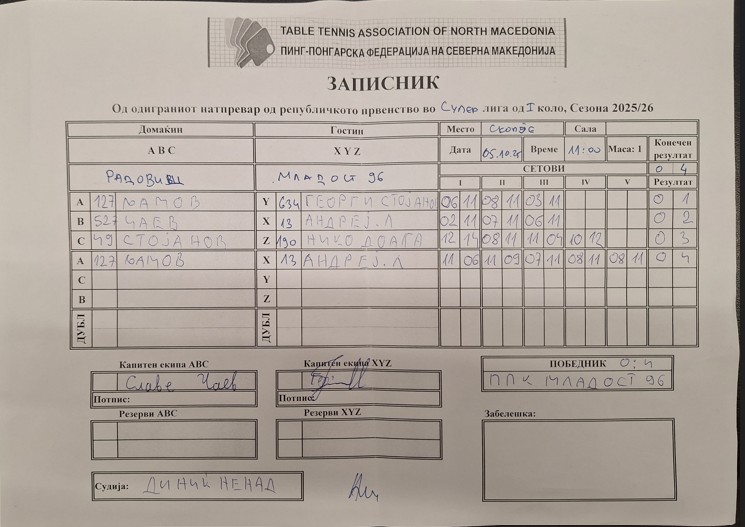 TABLE TENNIS ASSOCIATION OF NORTH MACEDONIA
ПИНГ-ПОНГАРСКА ФЕДЕРАЦИЈА НА СЕВЕРНА МАКЕДОНИЈА
ЗАПИСНИК
Од одиграниот натпревар од републичкото првенство во Супер лига од I коло, Сезона 2025/26
Домаќин Гостин Место Скопје Сала
A B C X Y Z Дата 05.10.25 Време 11:00 Маса: 1 Конечен резултат
РАДОВИШ МЛАДОСТ 96 СЕТОВИ 0 4
I II III IV V Резултат
A 127 Y 634 ГЕОРГИ 06 11 08 11 03 11 0 1
B 527 ЧАЕВ X 13 АНДРЕЈ.Л 02 11 07 11 06 11 0 2
C 49 СТОЈАНОВ Z 190 НИКО 12 14 08 11 11 04 10 12 0 3
A 127 X 13 АНДРЕЈ.Л 11 06 11 09 07 11 08 11 08 11 0 4
C Y
B Z
ДУБЛ ДУБЛ
Капитен екипа ABC Капитен екипа XYZ ПОБЕДНИК 0:4
Славе Чаев ППК МЛАДОСТ 96
Потпис: Потпис:
Резерви ABC Резерви XYZ Забелешка:
Судија: ДИНИЌ НЕНАД